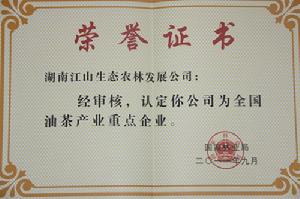 荣誉证书
湖南江山生态农林发展公司：
经审核，认定你公司为全国
油茶产业重点企业。
国家林业局
二〇一一年九月